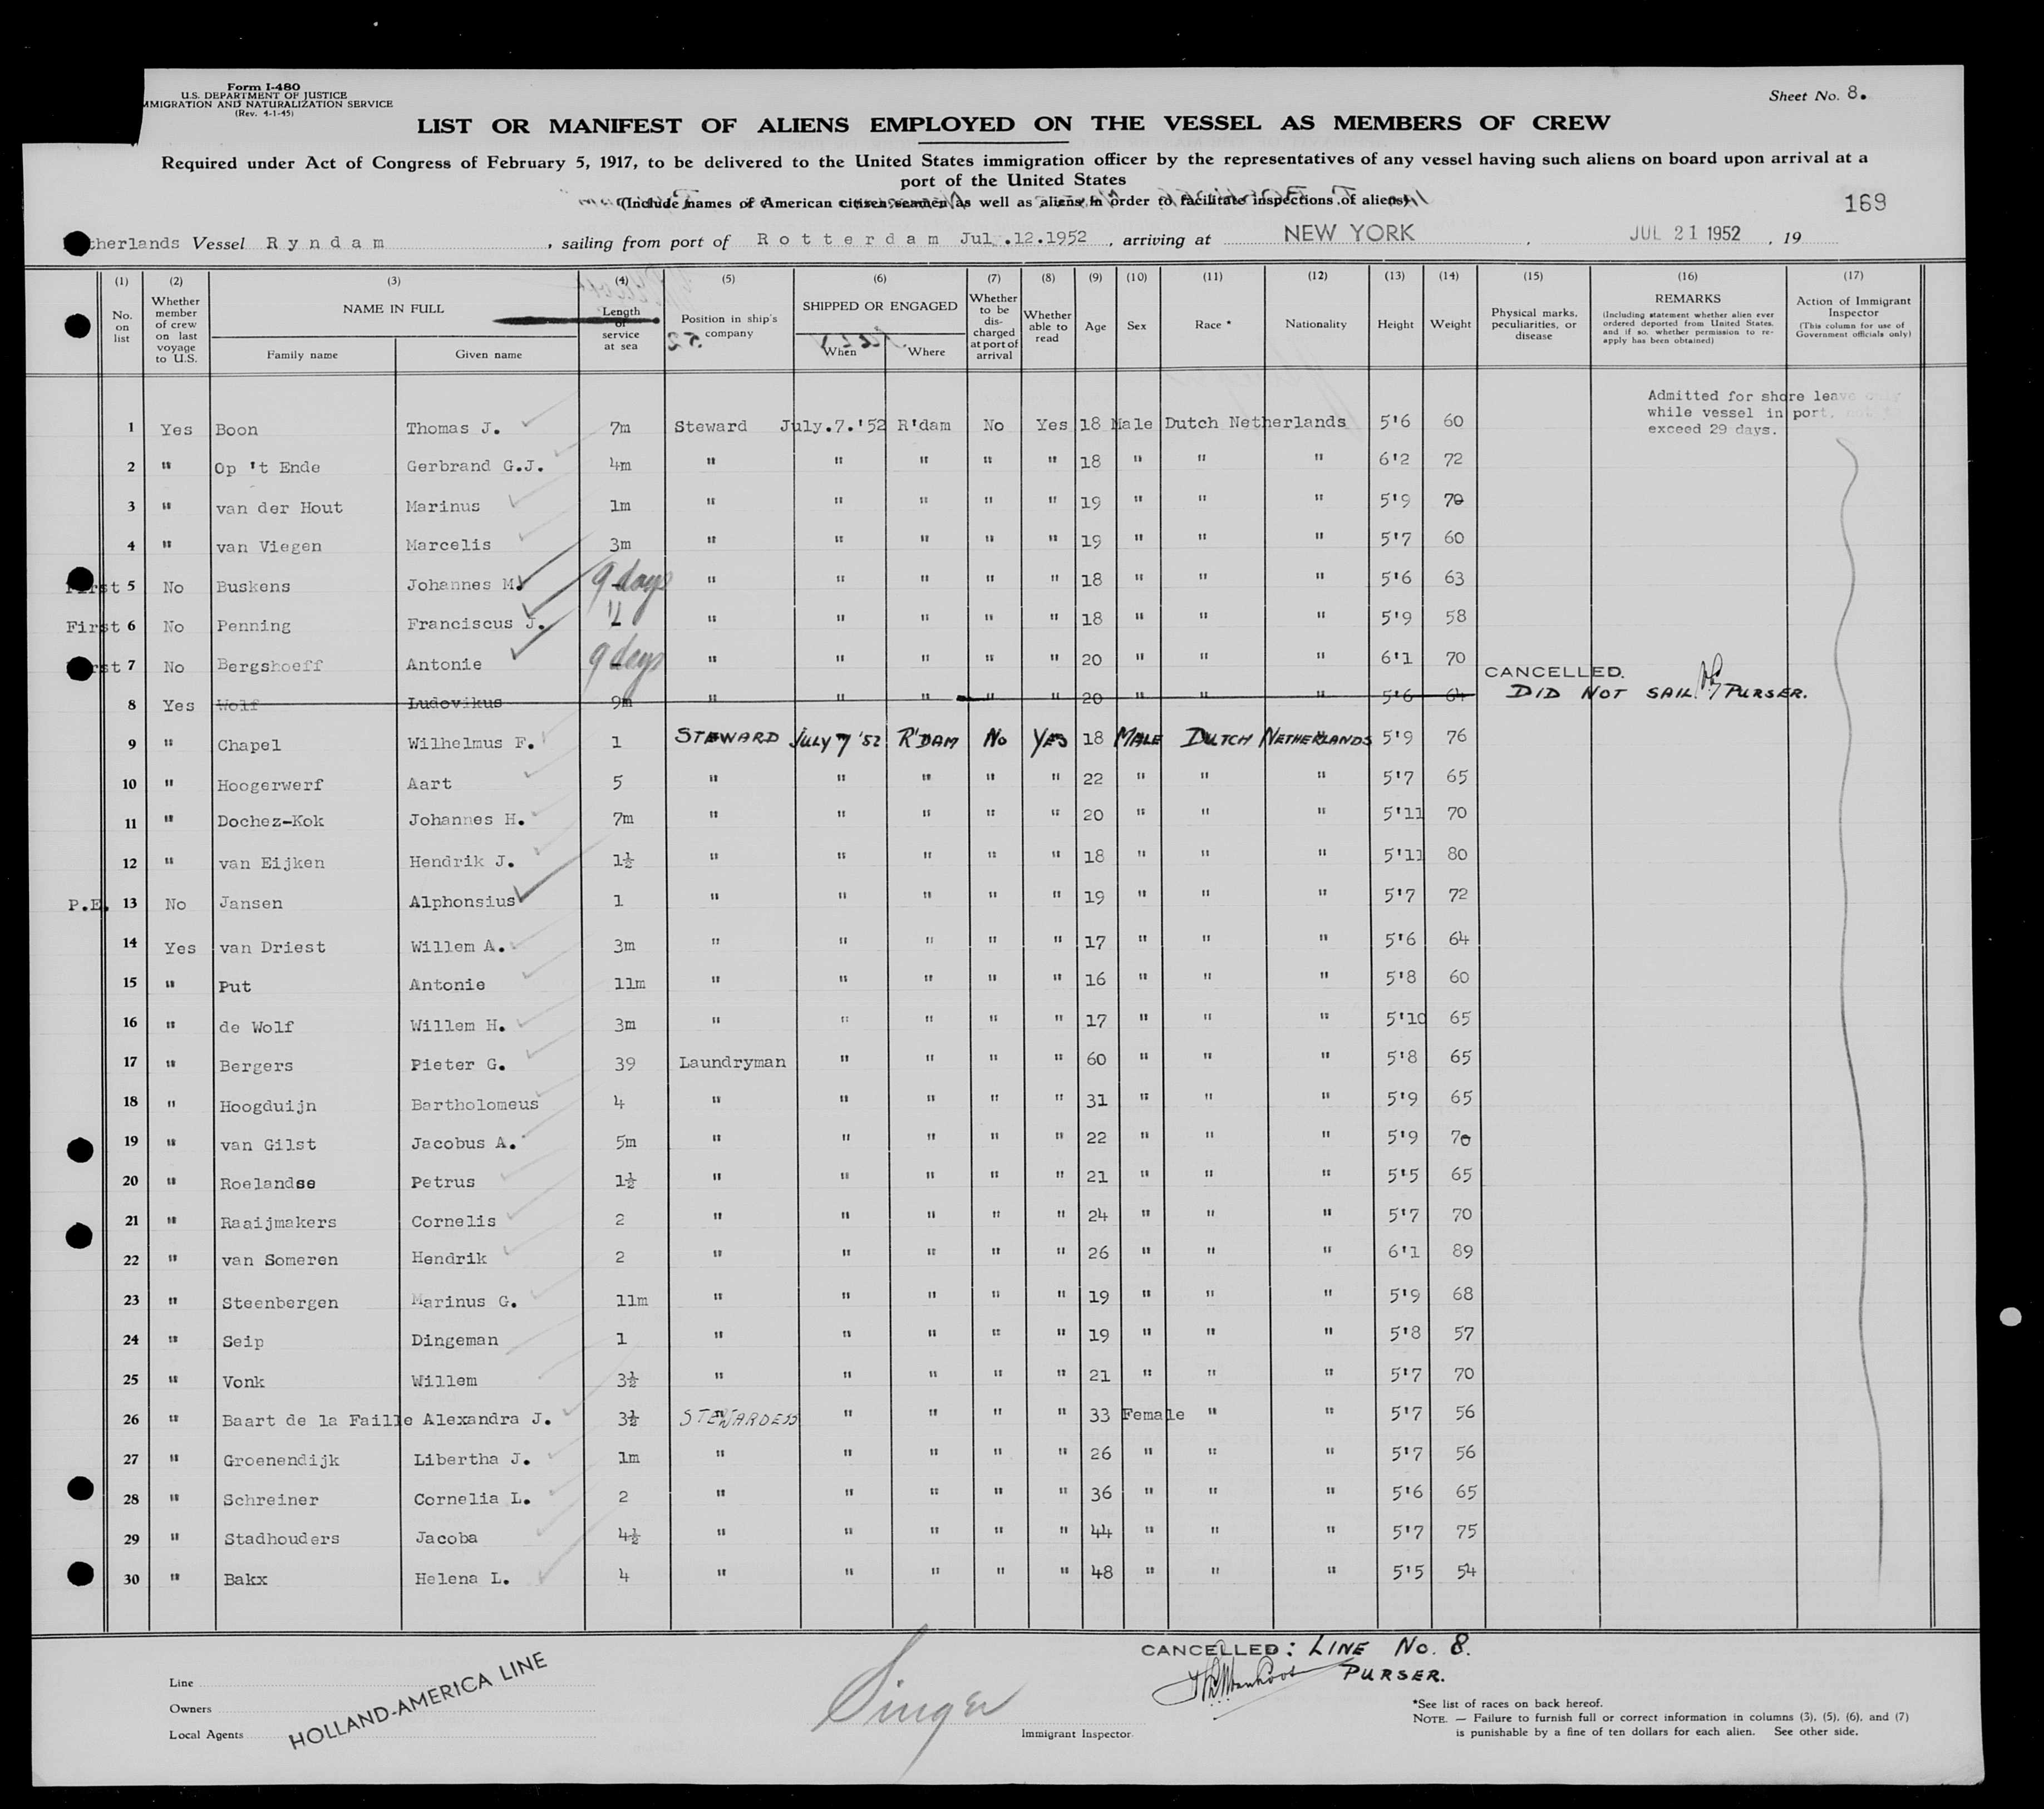 Form I-480
U.S. DEPARTMENT OF JUSTICE
MMIGRATION AND NATURALIZATION SERVICE
(Rev. 4-1-45)
Sheet No. 8.
LIST OR MANIFEST OF ALIENS EMPLOYED ON THE VESSEL AS MEMBERS OF CREW
Required under Act of Congress of February 5, 1917, to be delivered to the United States immigration officer by the representatives of any vessel having such aliens on board upon arrival at a
port of the United States
(Include names of American citizen seamen as well as aliens in order to facilitate inspections of aliens)
169
therlands Vessel Ryndam, sailing from port of Rotterdam Jul.12.1952, arriving at NEW YORK, JUL 21 1952, 19
(1) (2) (3) (4) (5) (6) (7) (8) (9) (10) (11) (12) (13) (14) (15) (16) (17)
No. on list
Whether member of crew on last voyage to U.S.
NAME IN FULL
Family name Given name
Length of service at sea
Position in ship's company
SHIPPED OR ENGAGED
When Where
Whether to be discharged at port of arrival
Whether able to read
Age
Sex
Race *
Nationality
Height
Weight
Physical marks, peculiarities, or disease
REMARKS
(Including statement whether alien ever ordered deported from United States, and if so, whether permission to reapply has been obtained)
Action of Immigrant Inspector
(This column for use of Government officials only)
Admitted for shore leave only
while vessel in port,
exceed 29 days.
1 Yes Boon Thomas J. 7m Steward July.7.'52 R'dam No Yes 18 Male Dutch Netherlands 5'6 60
2 " Op 't Ende Gerbrand G.J. 4m " " " " " 18 " " " 6'2 72
3 " van der Hout Marinus 1m " " " " " 19 " " " 5'9 70
4 " van Viegen Marcelis 3m " " " " " 19 " " " 5'7 60
First 5 No Buskens Johannes M. 9 days " " " " " 18 " " " 5'6 63
First 6 No Penning Franciscus J. " " " " " " 18 " " " 5'9 58
First 7 No Bergshoeff Antonie 9 days " " " " " 20 " " " 6'1 70
CANCELLED.
8 Yes Wolf Ludovikus 9m " " " " " 20 " " " 5'6 64 DID NOT SAIL PURSER.
9 " Chapel Wilhelmus F. 1 STEWARD JULY 7 '52 R'DAM No YES 18 MALE DUTCH NETHERLANDS 5'9 76
10 " Hoogerwerf Aart 5 " " " " " 22 " " " 5'7 65
11 " Dochez-Kok Johannes H. 7m " " " " " 20 " " " 5'11 70
12 " van Eijken Hendrik J. 1½ " " " " " 18 " " " 5'11 80
P.E. 13 No Jansen Alphonsius 1 " " " " " 19 " " " 5'7 72
14 Yes van Driest Willem A. 3m " " " " " 17 " " " 5'6 64
15 " Put Antonie 11m " " " " " 16 " " " 5'8 60
16 " de Wolf Willem H. 3m " " " " " 17 " " " 5'10 65
17 " Bergers Pieter G. 39 Laundryman " " " " 60 " " " 5'8 65
18 " Hoogduijn Bartholomeus 4 " " " " " 31 " " " 5'9 65
19 " van Gilst Jacobus A. 5m " " " " " 22 " " " 5'9 70
20 " Roelandse Petrus 1½ " " " " " 21 " " " 5'5 65
21 " Raaijmakers Cornelis 2 " " " " " 24 " " " 5'7 70
22 " van Someren Hendrik 2 " " " " " 26 " " " 6'1 89
23 " Steenbergen Marinus G. 11m " " " " " 19 " " " 5'9 68
24 " Seip Dingeman 1 " " " " " 19 " " " 5'8 57
25 " Vonk Willem 3½ " " " " " 21 " " " 5'7 70
26 " Baart de la Faille Alexandra J. 3½ STEWARDESS " " " " 33 Female " " 5'7 56
27 " Groenendijk Libertha J. 1m " " " " " 26 " " " 5'7 56
28 " Schreiner Cornelia L. 2 " " " " " 36 " " " 5'6 65
29 " Stadhouders Jacoba 4½ " " " " " 44 " " " 5'7 75
30 " Bakx Helena L. 4 " " " " " 48 " " " 5'5 54
CANCELLED: LINE No. 8.
PURSER.
Line
Owners
Local Agents
HOLLAND-AMERICA LINE
Singer
Immigrant Inspector
*See list of races on back hereof.
NOTE. — Failure to furnish full or correct information in columns (3), (5), (6), and (7)
is punishable by a fine of ten dollars for each alien. See other side.